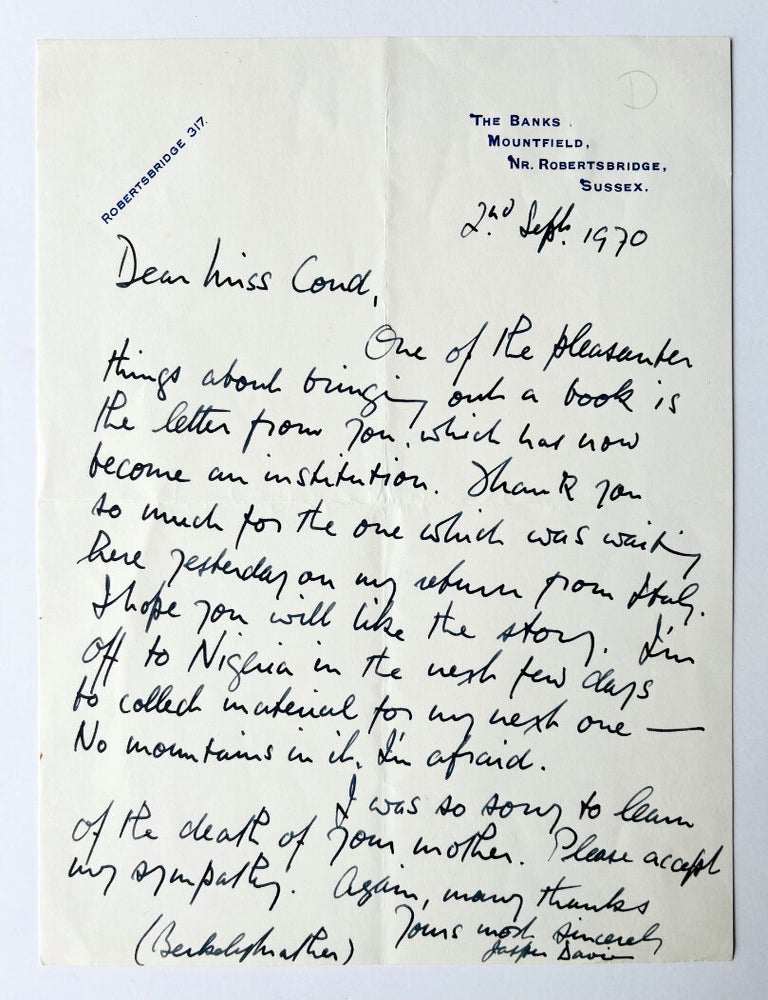 D
ROBERTSBRIDGE 317.
THE BANKS.
MOUNTFIELD,
NR. ROBERTSBRIDGE,
SUSSEX.
2nd Sept. 1970
Dear Miss Cond,
One of the pleasanter
things about bringing out a book is
the letter from you, which has now
become an institution. Thank you
so much for the one which was waiting
here yesterday on my return from Italy.
I hope you will like the story. I'm
off to Nigeria in the next few days
to collect material for my next one —
No mountains in it, I'm afraid.
I was so sorry to learn
of the death of your mother. Please accept
my sympathy. Again, many thanks
Yours most sincerely
Jasper Davies
(Berkely Mather)